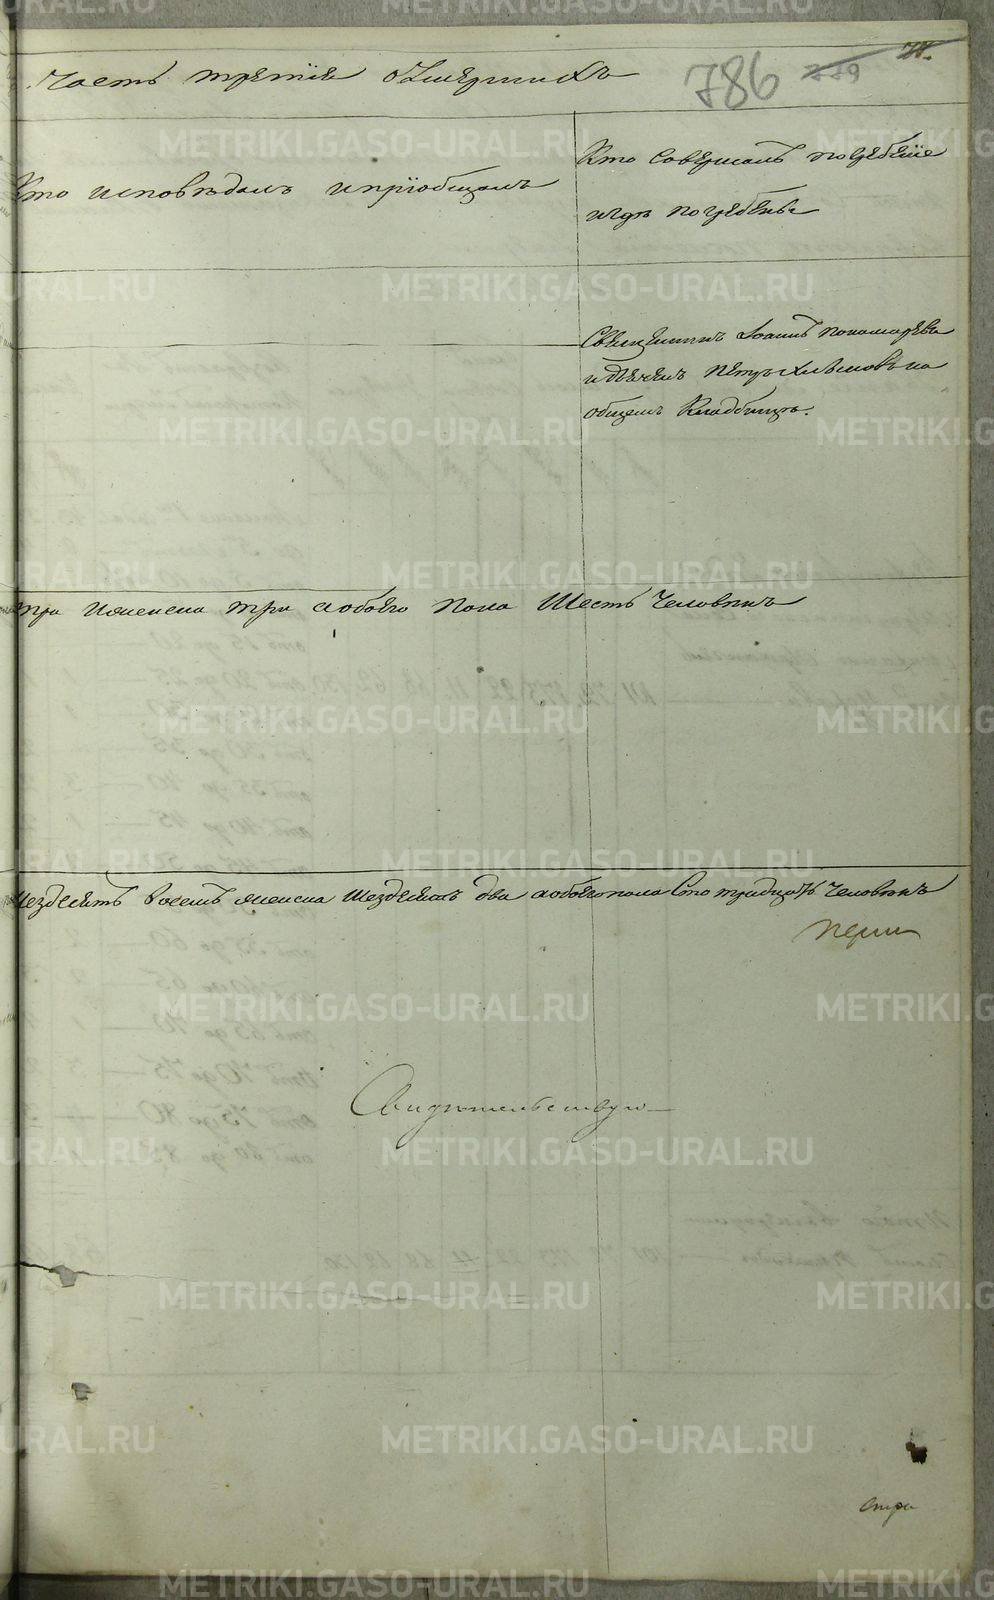 Часть третïя о умершихъ
786 779
Кто исповѣдалъ и прïобщалъ
Кто совершалъ погребенïе
и гдѣ погребены
Священникъ Іоаннъ Пономаревъ
и дьячекъ Петръ на
общемъ Кладбищѣ.
три женска три а обоего пола Шесть Человѣкъ
Шездесятъ Восемь женска Шездесятъ два а обоего пола Сто тридцать Человѣкъ
Свидѣтельствую
METRIKI.GASO-URAL.RU